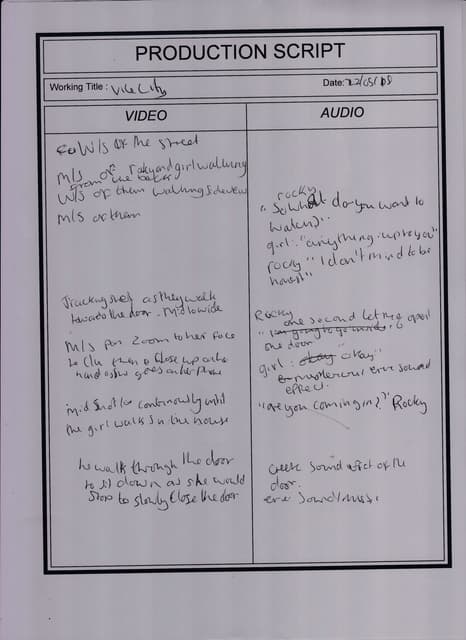 PRODUCTION SCRIPT
Working Title : Vice City
Date: 22/05/08
VIDEO
AUDIO
W/S of the street
M/S of rocky and girl walking
from the back
W/S of them walking side view
M/S of them
rocky
"So what do you want to
watch?"
girl: "anything: up to you"
rocky "I don't mind to be
honest"
Tracking shot as they walk
towards the door. Mid to wide
M/S pan zoom to her face
to C/u then a close up on the
hand as she goes on her phone
mid shot continously until
the girl walks in the house
he walk through the door
to sit down as she would
stop to slowly close the door
Rocky
one second let me open
the door
girl: okay "okay"
music eerie sound
effect.
"are you coming in?" Rocky
creek sound effect of the
door.
eerie sound/music